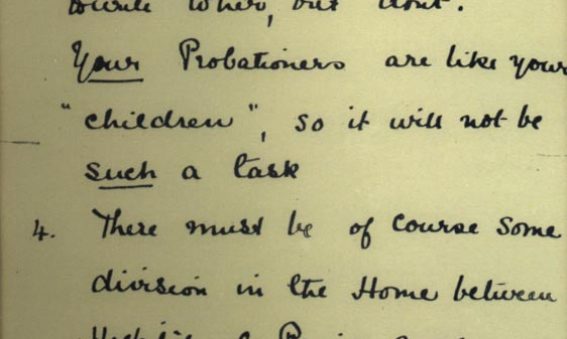 other, but don't.
Your Probationers are like your
"children", so it will not be
such a task
4. There must be of course some
division in the Home between